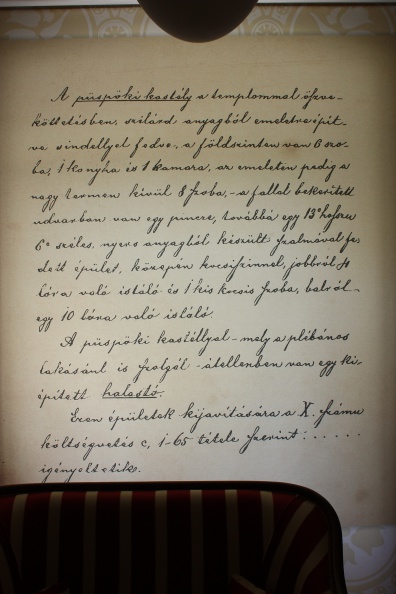 A püspöki kastély a templommal össze-
köttetésben, szilárd anyagból emeletre épít-
ve sindellyel fedve, a földszinten van 6 szo-
ba, 1 konyha és 1 kamara, az emeleten pedig a
nagy termen kívül 8 szoba, - a fallal bekerített
udvarban van egy pincze, továbbá egy 13° hosszu
6° széles, nyers anyagból készült szalmával fe-
dett épület, közepén kocsiszinnel, jobbról 4
lóra való istáló és 1 kis kocsis szoba, balról -
egy 10 lóra való istáló.
A püspöki kastéllyal - mely a plébános
lakásául is szolgál - átellenben van egy ki-
épitett halastó.
Ezen épületek kijavitására a X. számu
költségvetés c, 1-65 tétele szerint: . . . . .
igényeltetik.